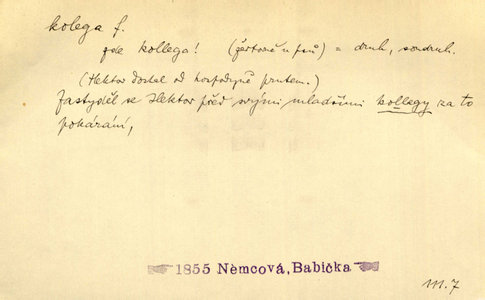 kolega f.
zde kollega! (žertovně u psů) = druh, soudruh.
(Hektor dostal od hospodyně prutem.)
Zastyděl se Hektor před svými mladšími kollegy za to
pokárání,
1855 Němcová, Babička
m. 7